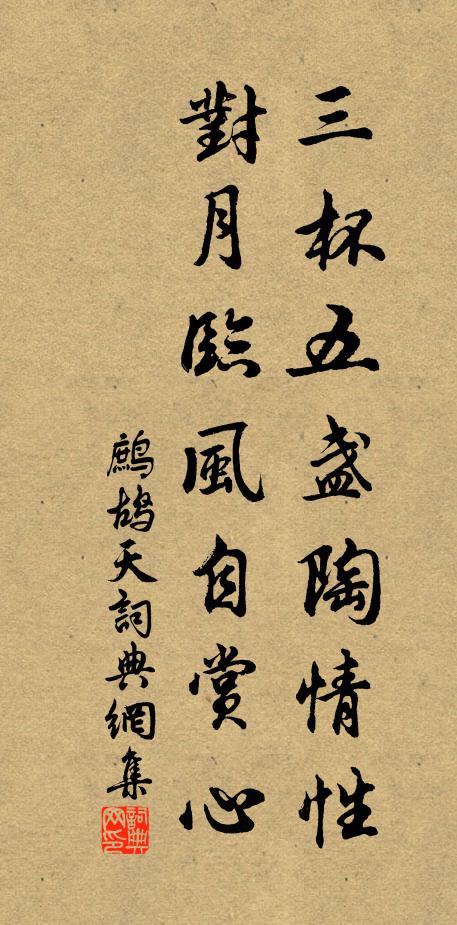 三杯五盞陶情性
對月臨風自賞心
鷓鴣天詞典網集
詞典網印